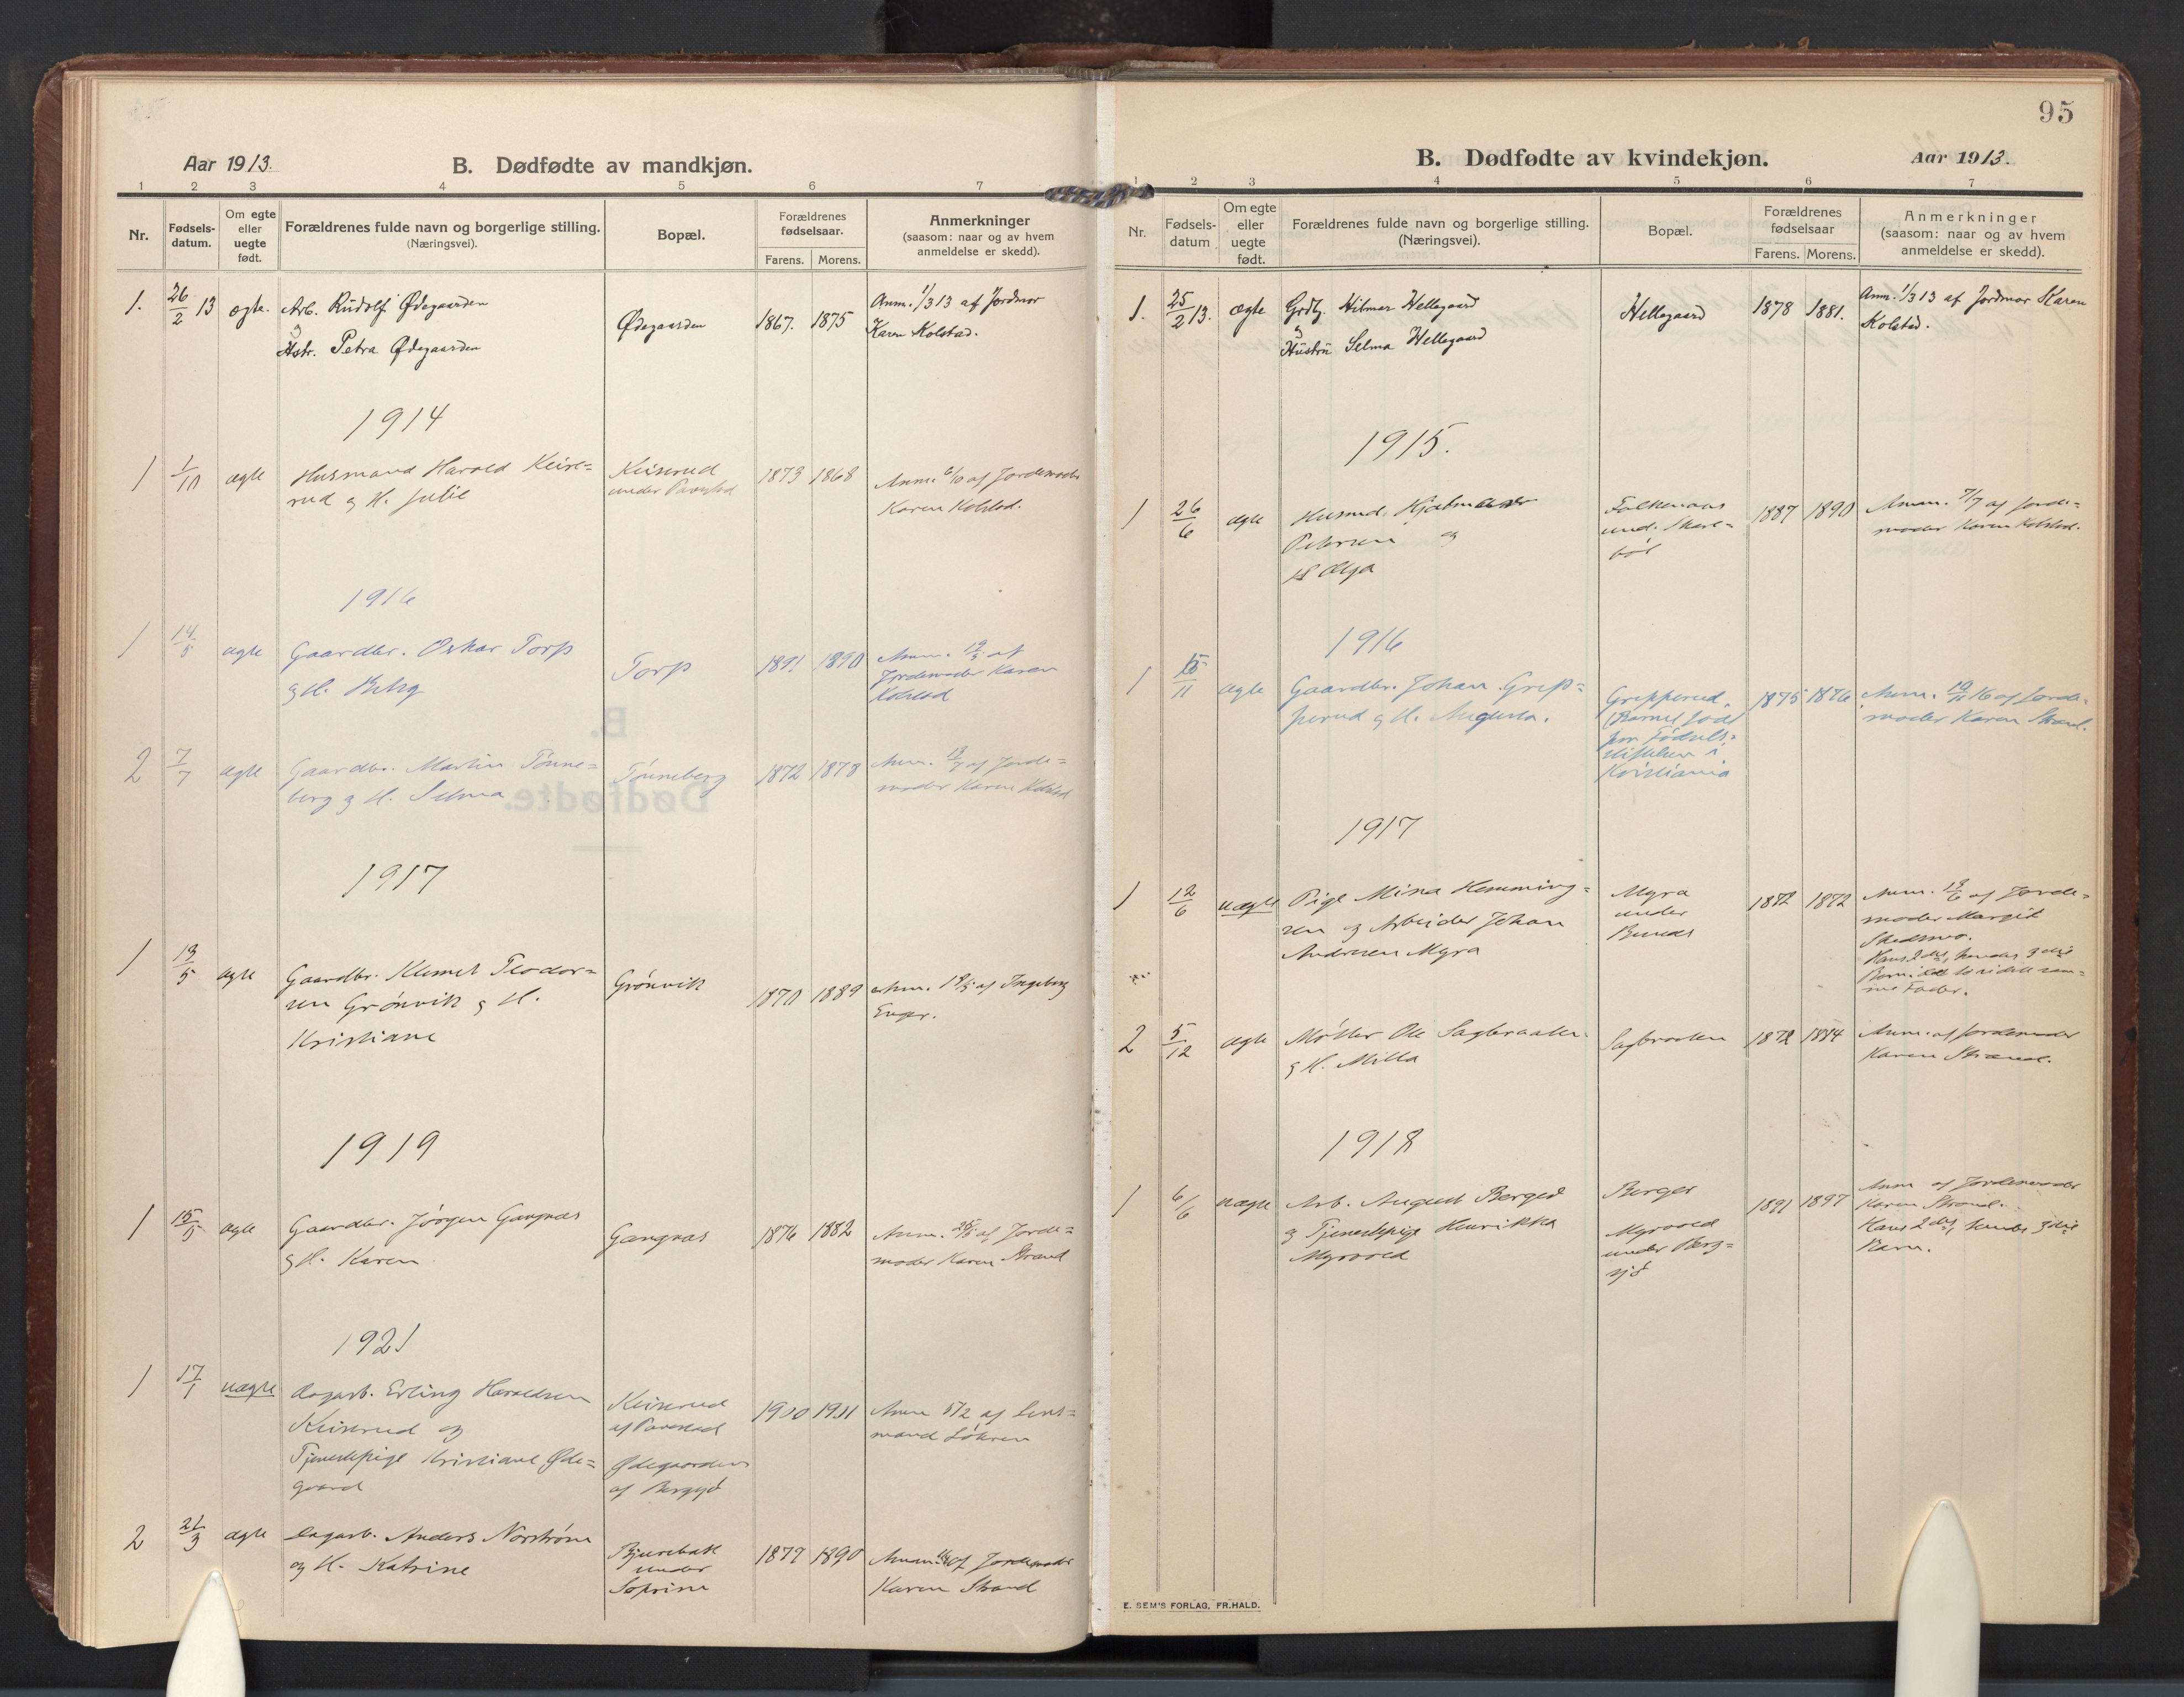 Aar 1913.
B. Dødfødte av mandkjøn.
1 2 3 4 5 6 7
Nr.
Fødsels-
datum.
Om egte
eller
uegte
født.
Forældrenes fulde navn og borgerlige stilling.
(Næringsvei).
Bopæl.
Forældrenes
fødselsaar.
Farens. Morens.
Anmerkninger
(saasom: naar og av hvem
anmeldelse er skedd).
1. 26/2 13 ægte. Arb. Rudolf Ødegaarden
Hstr. Petra Ødegaarden
Ødegaarden
1867. 1875
Anm. 1/3 13 af Jordmor
Karen Kolstad.
1914
1 1/10 ægte Husmand Harald Keise=
rud og H. Julie
Keiserud
under
1873 1868
Anm. 6/10 af Jordemoder
Karen Kolstad.
1916
1 14/5 ægte Gaardbr. Oskar Torp
og H.
Torp
1891 1890
Anm. af
Jordemoder Karen
Kolstad
2 7/7 ægte Gaardbr. Martin Tønne=
berg og H. Selma
Tønneberg
1872 1878
Anm. af Jorde=
moder Karen Kolstad
1917
1 13/5 ægte Gaardbr. Klemet Teodor=
sen Grønvik og H.
Kristiane
Grønvik
1870 1889
Anm. af Ingeborg
Enger.
1919
1 15/5 ægte Gaardbr. Jørgen Gangnæs
og H. Karen
Gangnæs
1876 1882
Anm. af Jorde=
moder Karen Strand
1921
1 17/1 uægte Dagarb. Erling Haraldsen
Keiserud og
Tjenestepige Kristiane Øde=
gaard
Keiserud
af
Ødegaarden
af Bergsjø
Anm af Lens=
mand Løken
2 21/3 ægte Dagarb. Anders Norstrøm
og H. Katrine
under
1890
Anm. af Jordemoder
Karen Strand
95
B. Dødfødte av kvindekjøn.
Aar 1913.
1 2 3 4 5 6 7
Nr.
Fødsels-
datum
Om egte
eller
uegte
født.
Forældrenes fulde navn og borgerlige stilling.
(Næringsvei).
Bopæl.
Forældrenes
fødselsaar
Farens. Morens.
Anmerkninger
(saasom: naar og av hvem
anmeldelse er skedd).
1. 25/2 13. ægte Grdbr. Hilmar Hellegaard
Hustru Selma Hellegaard
Hellegaard
1878 1881.
Anm. 1/3 13 af Jordmor Karen
Kolstad.
1915.
1 26/6 ægte Husmd. Hjalmar
Petersen og
H Olga
und.
1887 1890
Anm. 7/7 af Jorde=
moder Karen Kolstad.
1916
1 15/11 ægte Gaardbr. Johan Grep=
perud og H. Augusta.
Grepperud.
(Barnet født
paa Fødsels=
stiftelsen i
Kristiania
1875 1876
Anm. 16 af Jorde=
moder Karen Strand.
1917
1 12/6 uægte Pige Mina Hemming=
sen og Arbeider Johan
Andresen Myra
Myra
under
1872
Anm. af Jorde=
moder Margit
Skedsmo.
Hans 2det, hendes 3die
Barn,
me Fader.
2 5/12 ægte Møller Ole Sagbraaten
og H. Milla
Sagbraaten
1884
Anm. af Jordemoder
Karen Strand.
1918
1 6/6 uægte Arb. August Berger
og Tjenestepige Henrikka
Myrvold
Berger
Myrvold
under Berg=
sjø
1891 1897
Anm af Jordemoder
Karen Strand.
Hans 2det, hendes 3die
Barn.
E. SEM'S FORLAG, FR.HALD.